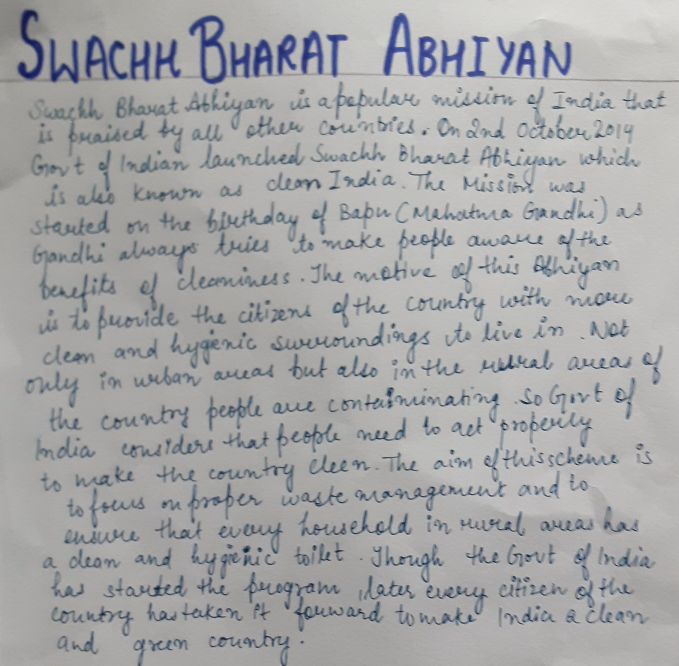 SWACHH BHARAT ABHIYAN
Swachh Bharat Abhiyan is a popular mission of India that
is praised by all other countries. On 2nd October 2014
Govt of Indian launched Swachh Bharat Abhiyan which
is also known as clean India. The Mission was
started on the birthday of Bapu (Mahatma Gandhi) as
Gandhi always tries to make people aware of the
benefits of cleaniness. The motive of this Abhiyan
is to provide the citizens of the country with more
clean and hygienic surroundings to live in. Not
only in urban areas but also in the rural areas of
the country people are contaminating. So Govt of
India considers that people need to act properly
to make the country cleen. The aim of this scheme is
to focus on proper waste management and to
ensure that every household in rural areas has
a clean and hygienic toilet. Though the Govt of India
has started the program, later every citizen of the
country has taken it forward to make India a clean
and green country.